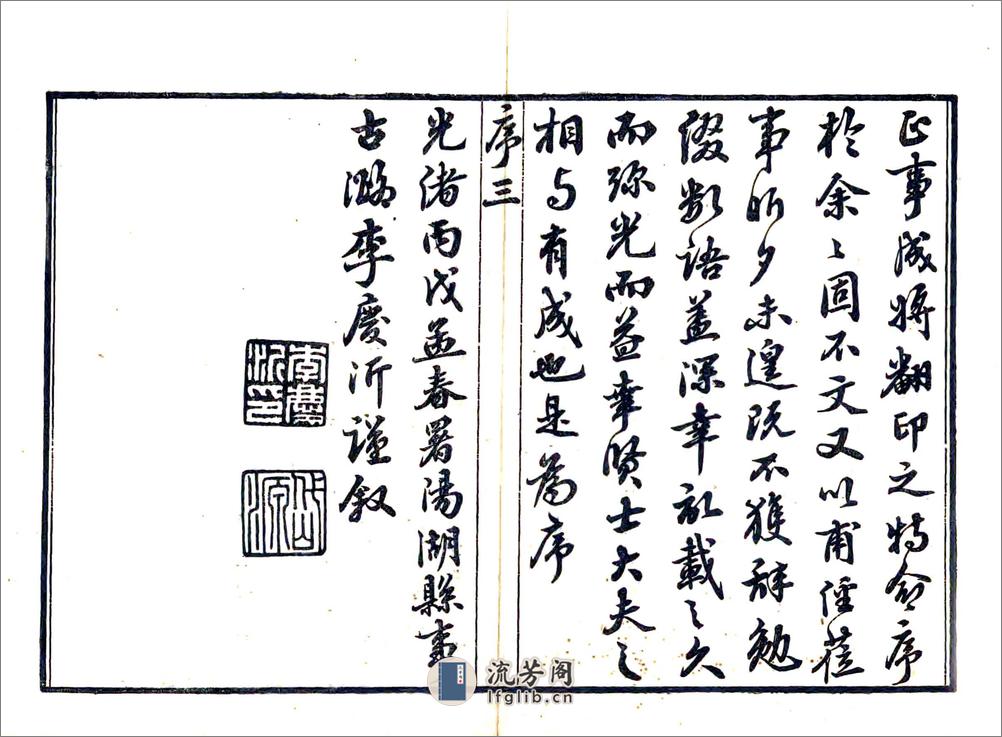 正事成將翻印之特命序
於余〻固不文又以甫經蒞
事昕夕未遑既不獲辭勉
綴數語蓋深幸記載之久
而弥光而益幸賢士大夫之
相与有成也是為序
序三
光緒丙戌孟春署陽湖縣事
古潞李慶沂謹叙
李慶沂印
岱源
流芳阁
lfglib.cn